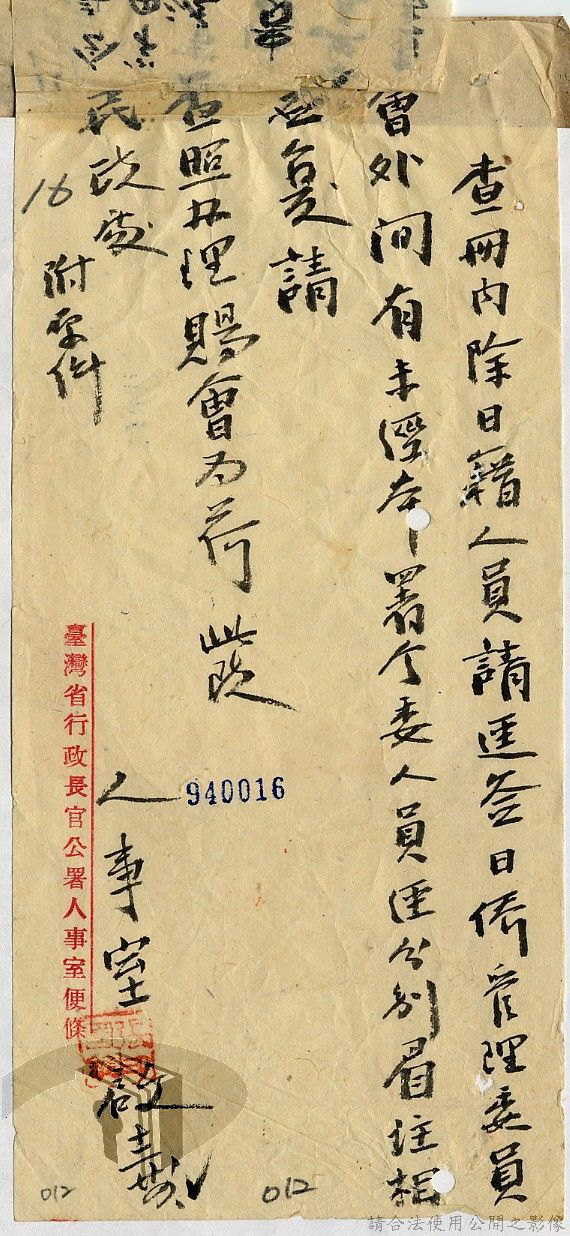 查冊內除日籍人員請逕簽日僑管理委員
會外間有未經本署令委人員逕分別眉註相
應復請
查照办理賜會為荷此致
民政處
附原件
16
人事室啟
臺灣省行政長官公署人事室便條
940016
012
012
請合法使用公開之影像